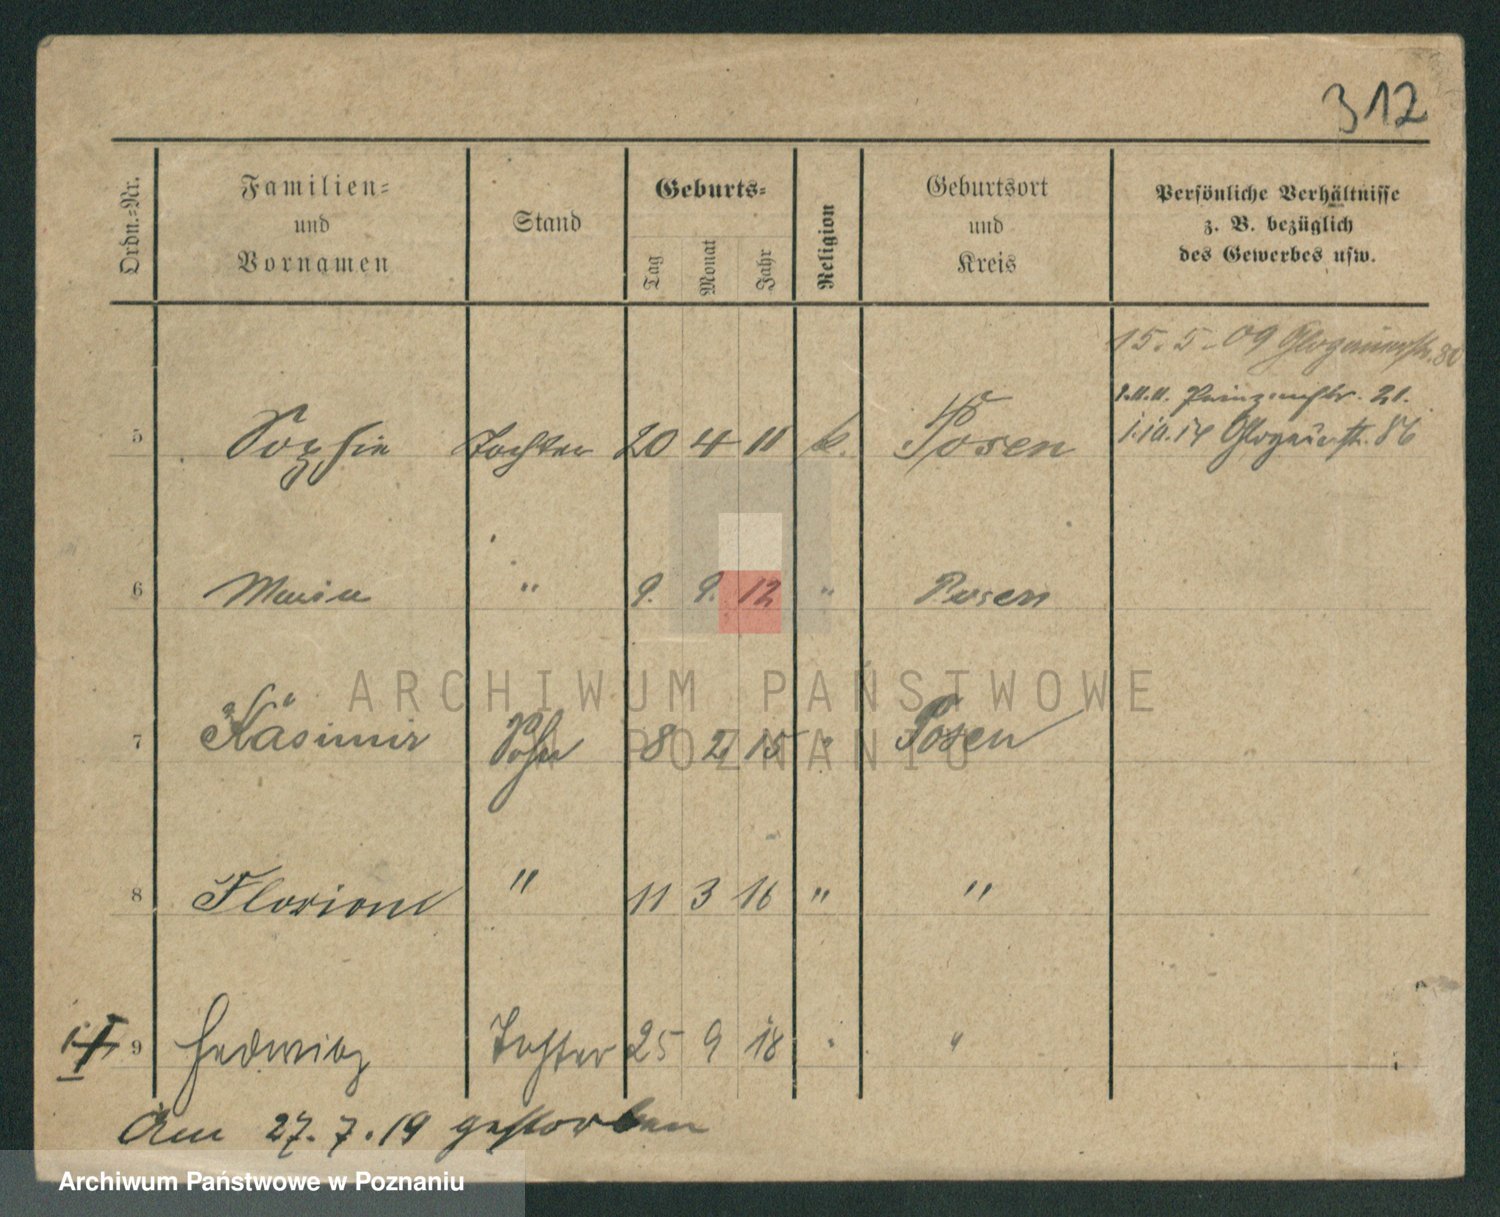 312
Ordn.-Nr.
Familien-
und
Vornamen
Stand
Geburts-
Tag
Monat
Jahr
Religion
Geburtsort
und
Kreis
Persönliche Verhältnisse
z. B. bezüglich
des Gewerbes usw.
15. 5. 09 Glogauerstr. 80
Prinzenstr. 21.
5 Sophie Tochter 20 4 11 k. Posen 1.10.14 Glogauerstr. 86
6 Maria " 9. 9. 12 " Posen
7 Kasimir Sohn 8 2 15 " Posen
8 Florian " 11 3 16 " "
9 Hedwig Tochter 25 9 18 " "
Am 27. 7. 19 gestorben
ARCHIWUM PAŃSTWOWE
W POZNANIU
Archiwum Państwowe w Poznaniu